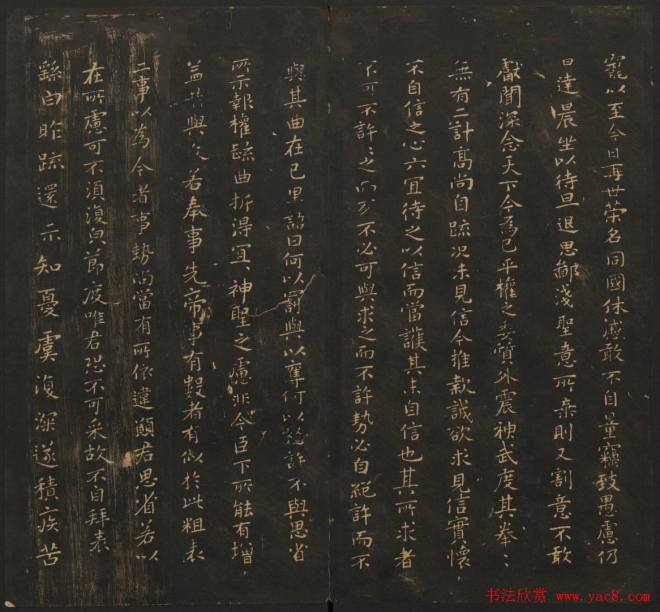 寵以至今日再世榮名同國休慼敢不自量竊致愚慮仍
日達晨坐以待旦退思鄙淺聖意所棄則又割意不敢
獻聞深念天下今為已平權之委質外震神武度其拳〻
無有二計高尚自疏況未見信今推款誠欲求見信實懷
不自信之心亦宜待之以信而當護其未自信也其所求者
不可不許〻之而反不必可與求之而不許勢必自絕許而不
與其曲在己里語曰何以罰與以奪何以怒許不與思省
所示報權疏曲折得宜〻神聖之慮非今臣下所能有增
益昔與文若奉事先帝事有數者有似於此粗表
二事以為今者事勢尚當有所依違願君思省若以
在所慮可不須復貌節度唯君恐不可采故不自拜表
繇白昨疏還示知憂虞復深遂積疾苦
书法欣赏 www.yac8.com